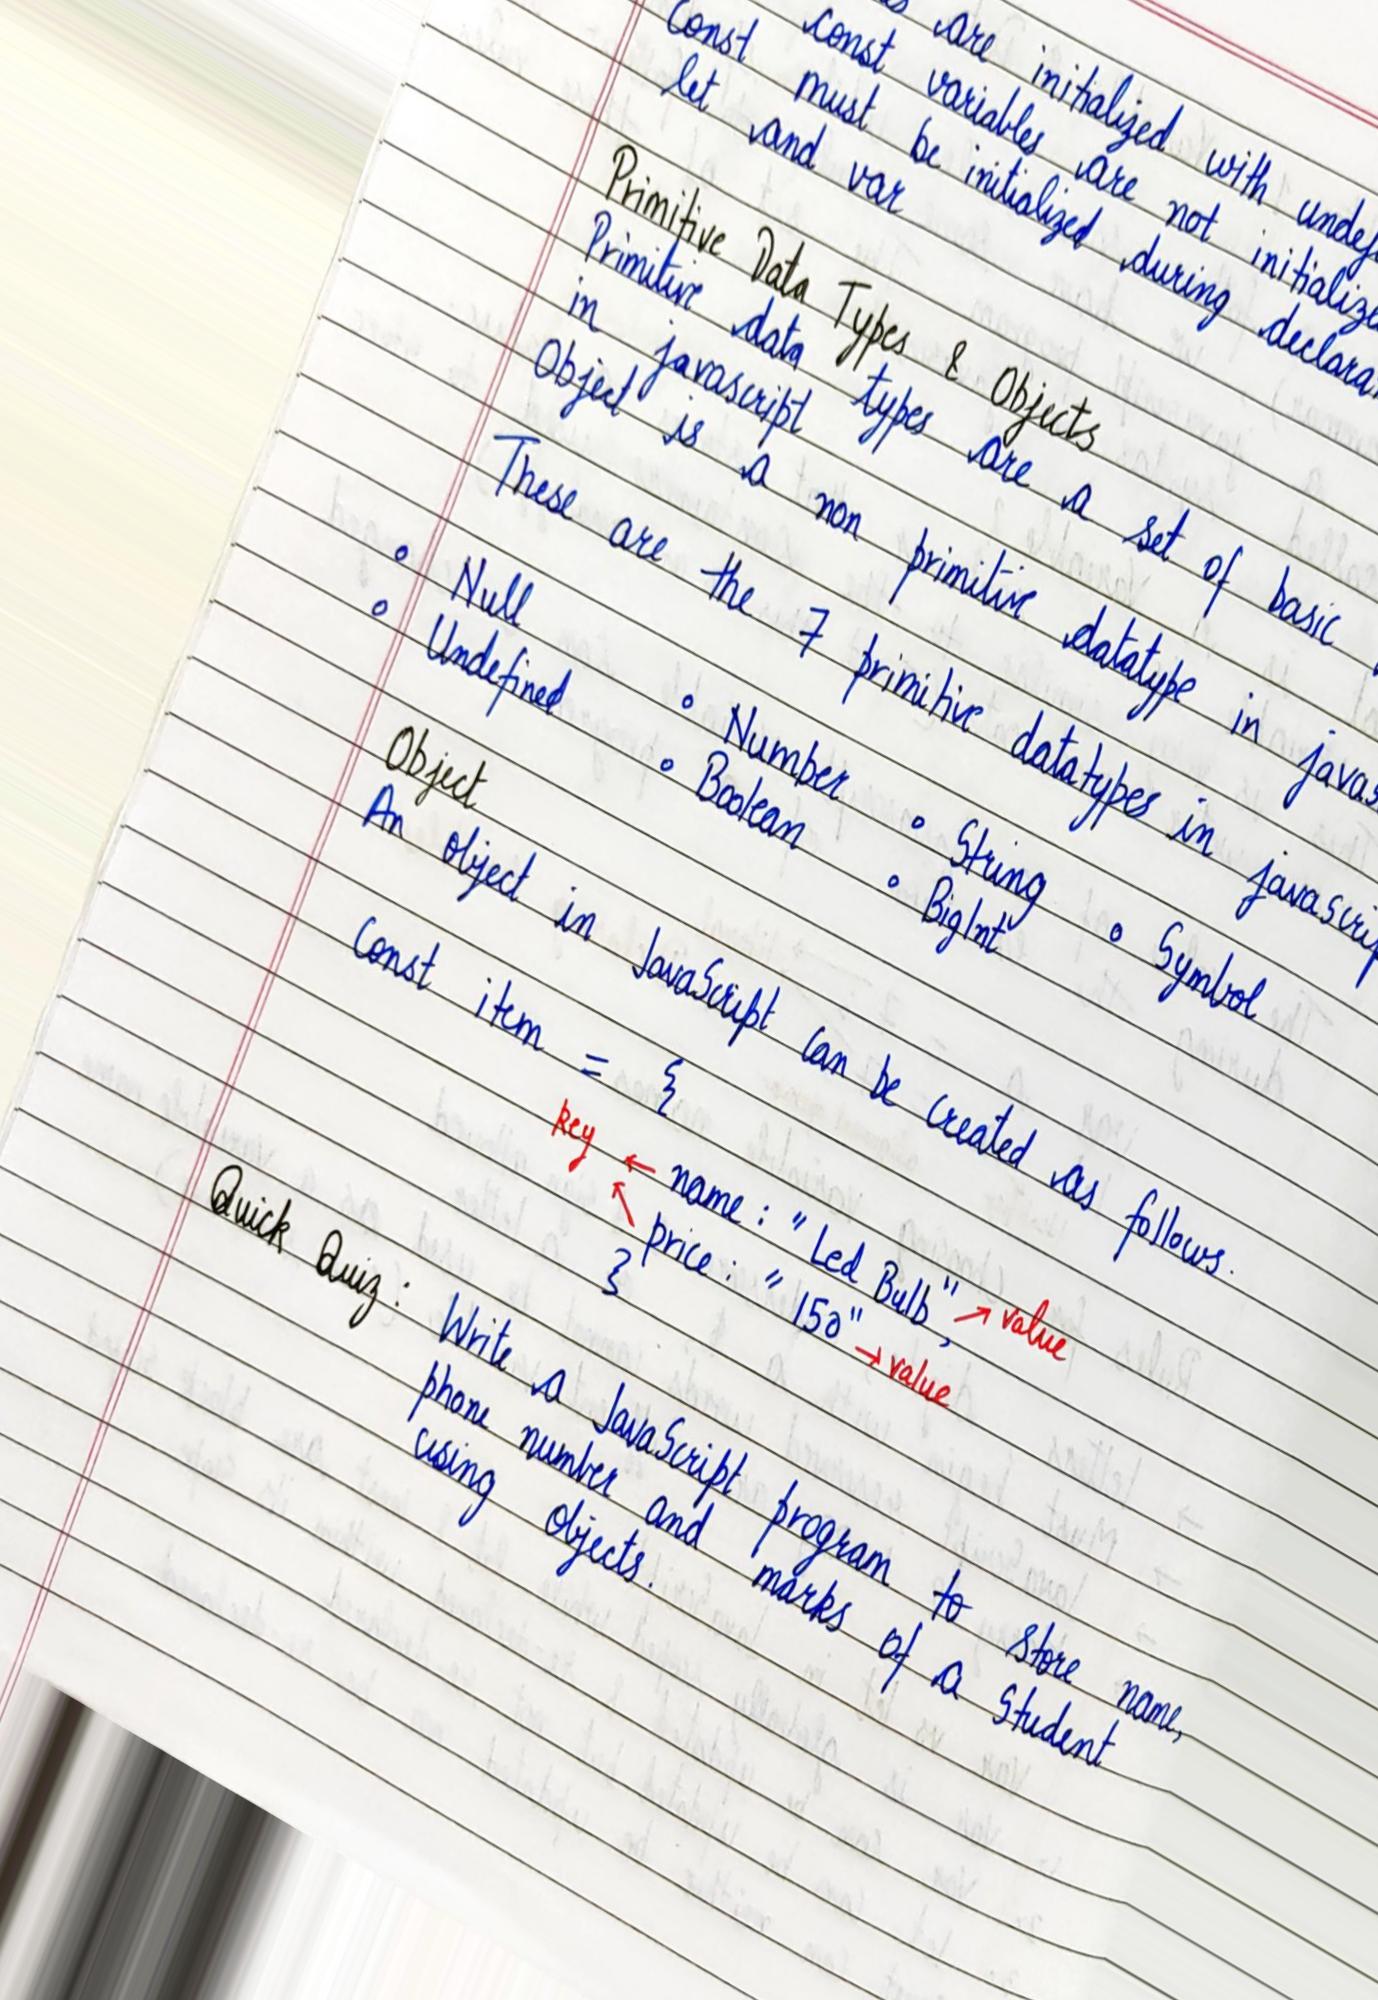 are initialized with
const variables are not
Const must be initialized during
let and var
Primitive Data Types & Objects
Primitive data types are a set of basic
in javascript
Object is a non primitive datatype in
These are the 7 primitive datatypes in
• Null • Number • String • Symbol
• Undefined • Boolean • BigInt
Object
An object in JavaScript can be created as follows.
Const item = {
key ← name : "Led Bulb", → value
price : "150" → value
}
Quick Quiz : Write a JavaScript program to store name,
phone number and marks of a student
using objects.